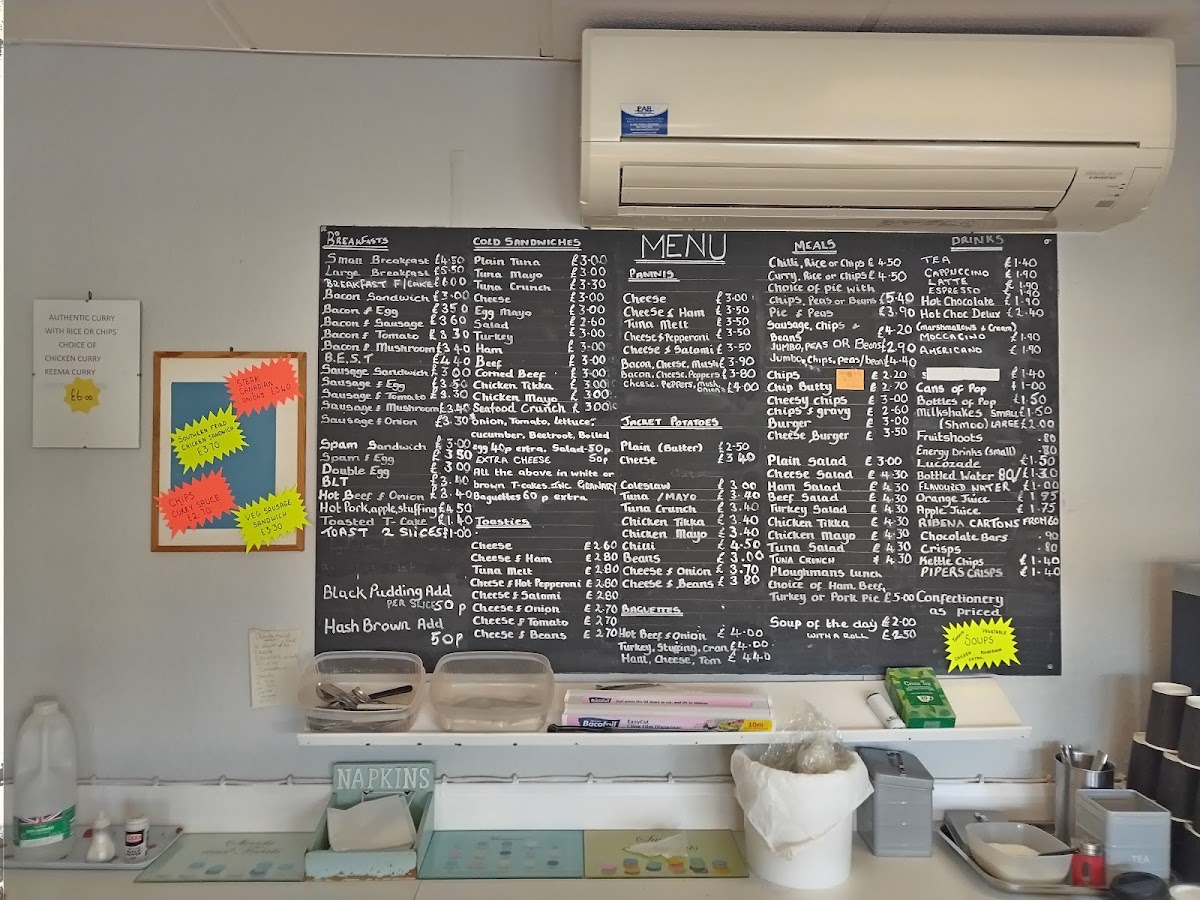 AUTHENTIC CURRY
WITH RICE OR CHIPS
CHOICE OF
CHICKEN CURRY
KEEMA CURRY
£6.00
STEAK
CANADIAN
ONIONS £3.40
SOUTHERN FRIED
CHICKEN SANDWICH
£3.70
CHIPS
CURRY SAUCE
£2.70
VEG SAUSAGE
SANDWICH
£3.30
BREAKFASTS
Small Breakfast £4.50
Large Breakfast £5.50
BREAKFAST F/CAKE £6.00
Bacon Sandwich £3.00
Bacon & Egg £3.50
Bacon & Sausage £3.60
Bacon & Tomato £3.30
Bacon & Mushroom £3.40
B.E.S.T £4.40
Sausage Sandwich £3.00
Sausage & Egg £3.50
Sausage & Tomato £3.30
Sausage & Mushroom £3.40
Sausage & Onion £3.30
Spam Sandwich £3.00
Spam & Egg £3.50
Double Egg £3.00
BLT £3.40
Hot Beef & Onion £3.40
Hot Pork, apple, stuffing £4.50
Toasted T-Cake £1.40
TOAST 2 SLICES £1.00
Black Pudding Add
PER SLICE 50p
Hash Brown Add
50p
COLD SANDWICHES
Plain Tuna £3.00
Tuna Mayo £3.00
Tuna Crunch £3.30
Cheese £3.00
Egg Mayo £3.00
Salad £2.60
Turkey £3.00
Ham £3.00
Beef £3.00
Corned Beef £3.00
Chicken Tikka £3.00
Chicken Mayo £3.00
Seafood Crunch £3.00
Onion, Tomato, Lettuce,
cucumber, Beetroot, Boiled
egg 40p extra. Salad 50p.
EXTRA CHEESE 50p
All the above in white or
brown T-cakes. INC GRANARY
Baguettes 60p extra
Toasties
Cheese £2.60
Cheese & Ham £2.80
Tuna Melt £2.80
Cheese & Hot Pepperoni £2.80
Cheese & Salami £2.80
Cheese & Onion £2.70
Cheese & Tomato £2.70
Cheese & Beans £2.70
MENU
PANINIS
Cheese £3.00
Cheese & Ham £3.50
Tuna Melt £3.50
Cheese & Pepperoni £3.50
Cheese & Salami £3.50
Bacon, Cheese, Mush £3.90
Bacon, Cheese, Peppers £3.80
Cheese, Peppers, Mush,
Onions £4.00
JACKET POTATOES
Plain (Butter) £2.50
Cheese £3.40
Coleslaw £3.00
Tuna /MAYO £3.40
Tuna Crunch £3.40
Chicken Tikka £3.40
Chicken Mayo £3.40
Chilli £4.50
Beans £3.00
Cheese & Onion £3.70
Cheese & Beans £3.80
BAGUETTES
Hot Beef & Onion £4.00
Turkey, Stuffing, Cran £4.00
Ham, Cheese, Tom £4.40
MEALS
Chilli, Rice or Chips £4.50
Curry, Rice or Chips £4.50
Choice of pie with
Chips, Peas or Beans £5.40
Pie & Peas £3.90
Sausage, chips &
Beans £4.20
JUMBO, PEAS OR Beans £2.90
Jumbo, Chips, peas/bean £4.40
Chips £2.20
Chip Butty £2.70
Cheesy chips £3.00
Chips & gravy £2.60
Burger £3.00
Cheese Burger £3.50
Plain Salad £3.00
Cheese Salad £4.30
Ham Salad £4.30
Beef Salad £4.30
Turkey Salad £4.30
Chicken Tikka £4.30
Chicken Mayo £4.30
Tuna Salad £4.30
TUNA CRUNCH £4.30
Ploughmans Lunch
Choice of Ham Beef,
Turkey or Pork Pie £5.00
Soup of the day £2.00
WITH A ROLL £2.50
DRINKS
TEA £1.40
CAPPUCCINO £1.90
LATTE £1.90
ESPRESSO £1.90
Hot Chocolate £1.90
Hot Choc Delux £2.40
(Marshmallows & Cream)
MOCCACINO £1.90
AMERICANO £1.90
S £1.40
Cans of Pop £1.00
Bottles of Pop £1.50
Milkshakes SMALL £1.50
(Shmoo) LARGE £2.00
Fruitshoots .80
Energy Drinks (small) .80
Lucozade £1.50
Bottled Water 80/£1.30
FLAVOURED WATER £1.00
Orange Juice £1.75
Apple Juice £1.75
RIBENA CARTONS FROM 60
Chocolate Bars .90
Crisps .80
Kettle Chips £1.40
PIPERS CRISPS £1.40
Confectionery
as priced
TOMATO VEGETABLE
SOUPS
CHICKEN MUSHROOM
NAPKINS
Bacofoil
EasyCut
10m
TEA